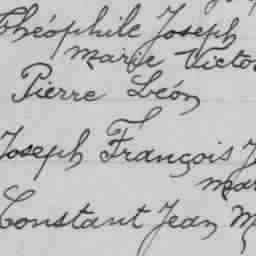 Théophile Joseph
Marie Victo
Pierre Léon
Joseph François J
Mar
Constant Jean M